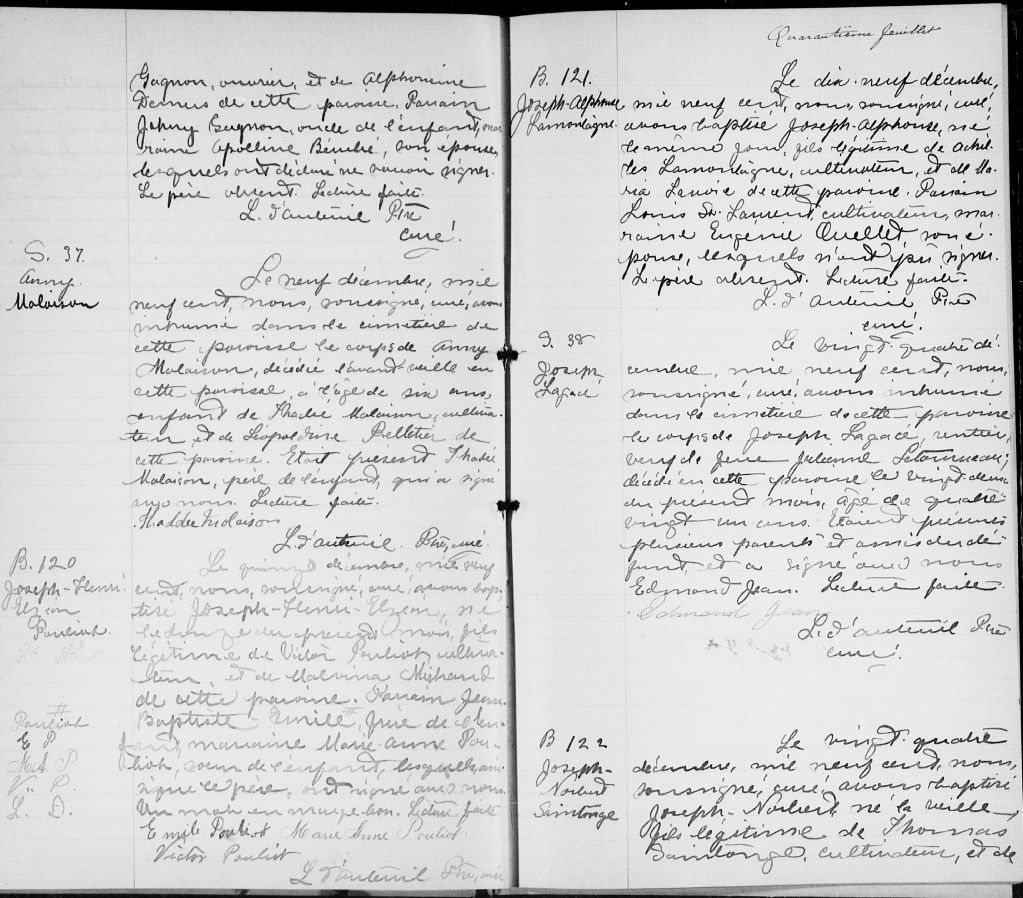 Gagnon, ouvrier, et de Alphonsine
Demers de cette paroisse. Parrain
Johny Gagnon, oncle de l'enfant, mar
raine Apolline Bérubé, son épouse,
lesquels ont déclaré ne savoir signer.
Le père absent. Lecture faite.
L. d'auteuil Ptre
curé.
S. 37.
Anny
Malaison
Le neuf décembre, mil
neuf cent, nous, soussigné, curé, avons
inhumé dans le cimetière de
cette paroisse le corps de Anny
Malaison, décédée l'avant veille en
cette paroisse, à l'âge de six ans,
enfant de Thadée Malaison, cultiva-
teur, et de Léopoldine Pelletier de
cette paroisse. Etait présent Thadée
Malaison, père de l'enfant, qui a signé
avec nous. Lecture faite.
Thaddée Molaison
L. d'auteuil. Ptre, curé.
B. 120
Joseph-Henri-
Elzéar
Pouliot.
Le quinze décembre, mil neuf
cent, nous, soussigné, curé, avons bap
tisé Joseph-Henri-Elzéar, né
le douze du présent mois, fils
légitime de Victor Pouliot, cultiva-
teur, et de Malvina Michaud
de cette paroisse. Parrain Jean-
Baptiste-Emile #, frère de l'en-
fant, marraine Marie-Anne Pou-
liot, soeur de l'enfant, lesquels, ainsi
que le père, ont signé avec nous.
Un mot en marge bon. Lecture faite
#
Pouliot
E P
M.A. P
V. P.
L. D.
Emile Pouliot Marie Anne Pouliot
Victor Pouliot
L d'auteuil Ptre, curé
Quarantième feuillet
B. 121.
Joseph-Alphonse
Lamontagne.
Le dix-neuf décembre,
mil neuf cent, nous, soussigné, curé,
avons baptisé Joseph-Alphonse, né
le même jour, fils légitime de Achil-
les Lamontagne, cultivateur, et de Ma-
ria Lavoie de cette paroisse. Parrain
Louis St. Laurent, cultivateur, mar-
raine Eugénie Ouellet, son é-
pouse, lesquels n'ont pu signer.
Le père absent. Lecture faite.
L. d'auteuil Ptre
curé.
S. 38
Joseph
Lagacé
Le vingt-quatre dé-
cembre, mil neuf cent, nous,
soussigné, curé, avons inhumé
dans le cimetière de cette paroisse
le corps de Joseph Lagacé, rentier,
veuf de feue Julienne Létourneau,
décédé en cette paroisse le vingt-deux
du présent mois, âgé de quatre
vingt un ans. Etaient présents
plusieurs parents et amis du dé-
funt, et a signé avec nous
Edmond Jean. Lecture faite
Edmond Jean
L. d'auteuil Ptre
curé.
B 122
Joseph-
Norbert
Saintonge
Le vingt-quatre
décembre, mil neuf cent, nous,
soussigné, curé, avons baptisé
Joseph-Norbert né la veille
fils légitime de Thomas
Saintonge, cultivateur, et de